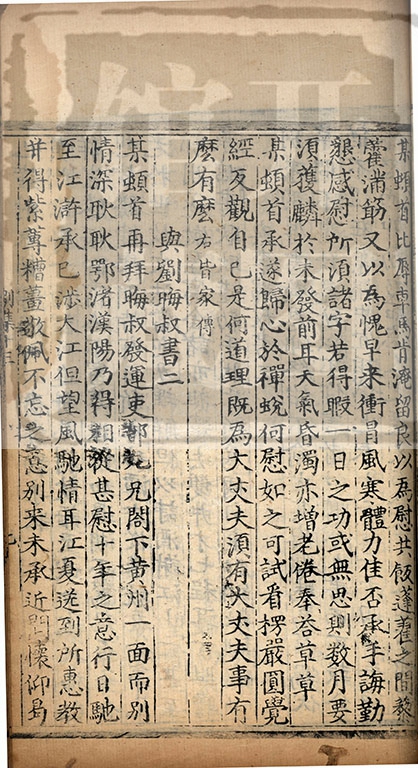 某頓首比辱車馬肯淹留良以為慰共飯蓬藋之間藜
藿滿筯又以為愧早来衝冒風寒體力佳否承手誨勤
懇感慰所須諸字若得暇一日之功或無思則數月要
須獲麟於未發前耳天氣昏濁亦增老倦奉荅草草
某頓首承遂歸心於禪蛻何慰如之可試看楞嚴圓覺
經反觀自己是何道理既為大丈夫須有大丈夫事有
麽有麽右皆家傳
與劉晦叔書二
某頓首再拜晦叔發運吏部九兄閤下黄州一面而别
情深耿耿鄂渚漢陽乃得相從甚慰十年之意行日馳
至江滸承已渉大江但望風馳情耳江憂送到所惠教
并得紫蓴糟薑敬佩不忘之意别来未承近問懷仰曷
别集十三